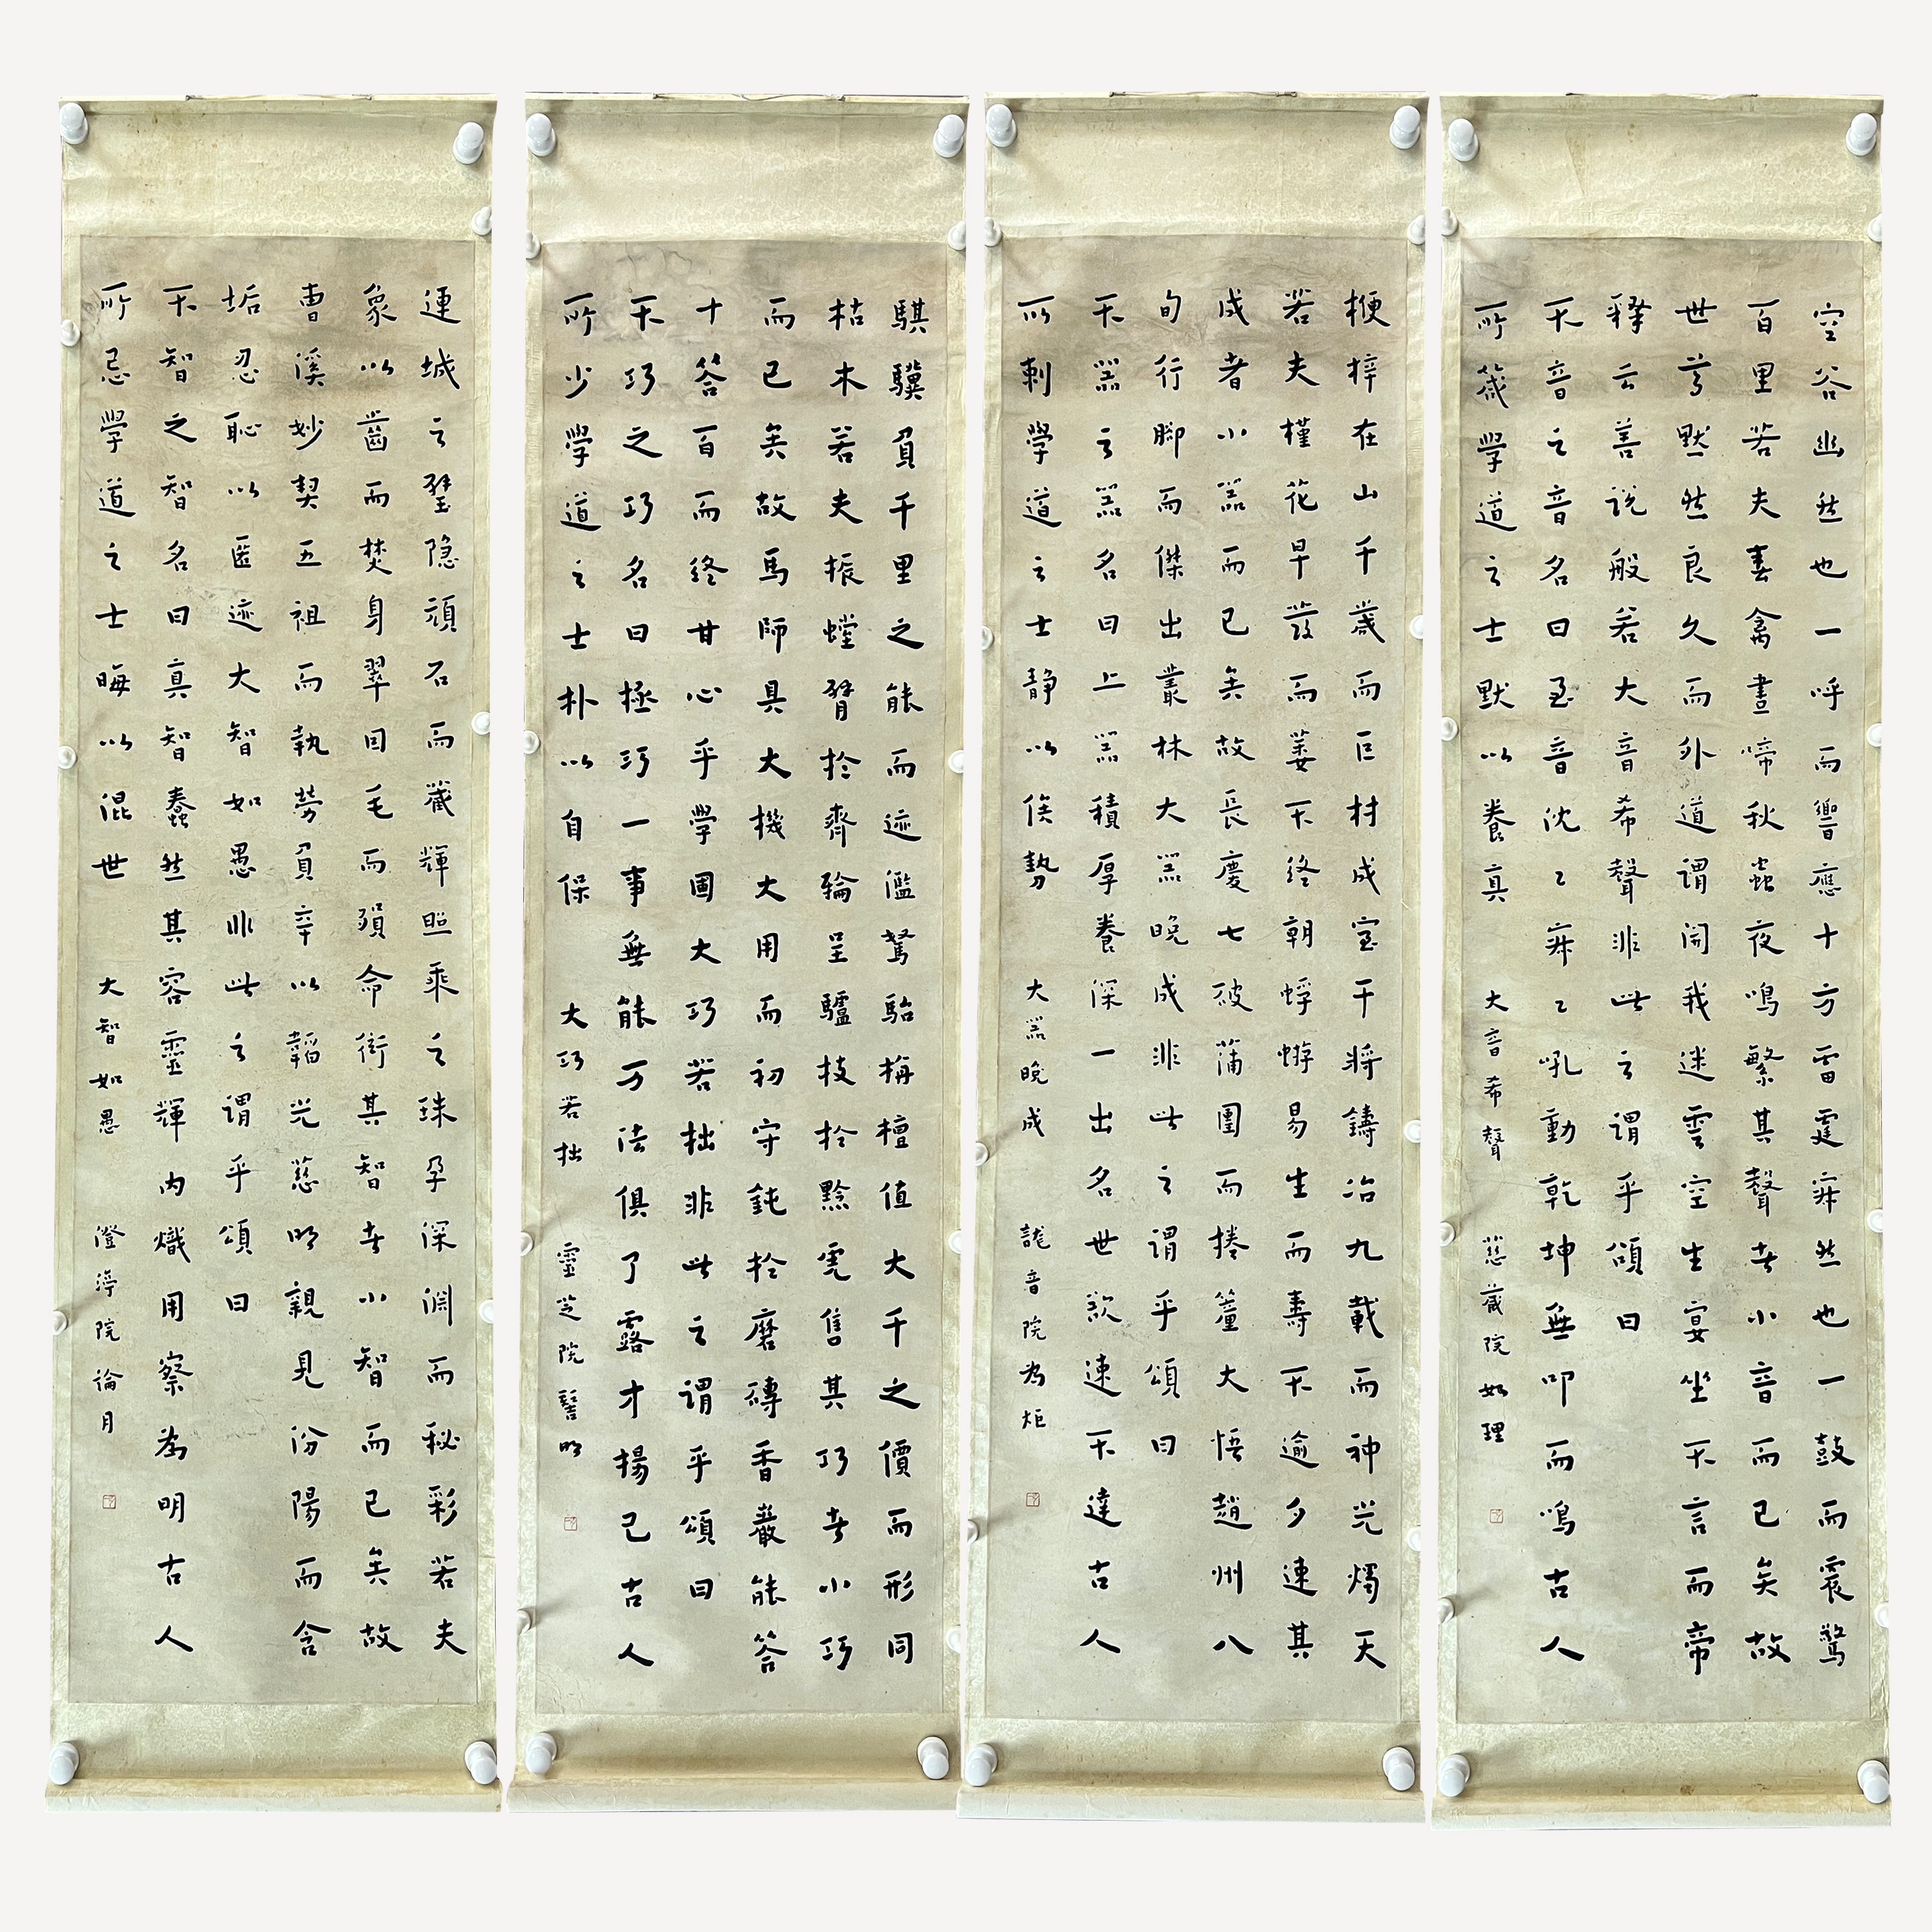 空谷幽然也一呼而響應十方雷霆寂然也一鼓而震驚
百里若夫春禽晝啼秋蟲夜鳴繁其聲者小音而已矣故
世尊默然良久而外道謂開我迷雲空生宴坐不言而帝
釋云善說般若大音希聲非此之謂乎頌曰
不音之音名曰至音沈〻寂〻吼動乾坤無叩而鳴古人
所箴學道之士默以養真 大音希聲 慈藏院如理
楩梓在山千歲而巨材成室干將鑄冶九載而神光燭天
若夫槿花早發而萎不終朝蜉蝣易生而壽不逾夕速其
成者小器而已矣故長慶七破蒲團而捲簾大悟趙州八
旬行腳而傑出叢林大器晚成非此之謂乎頌曰
不器之器名曰上器積厚養深一出名世欲速不達古人
所刺學道之士靜以俟勢 大器晚成 龍音院為炬
騏驥負千里之能而迹濫駑駘栴檀值大千之價而形同
枯木若夫振螳臂於齊輪呈驢技於黔虎售其巧者小巧
而已矣故馬師具大機大用而初守鈍於磨磚香嚴能答
十答百而終甘心乎學圃大巧若拙非此之謂乎頌曰
不巧之巧名曰極巧一事無能万法俱了露才揚己古人
所少學道之士朴以自保 大巧若拙 靈芝院詧明
連城之璧隱頑石而藏輝照乘之珠孕深淵而秘彩若夫
象以齒而焚身翠因毛而殞命衒其智者小智而已矣故
曹溪妙契五祖而執勞負辛以韜光慈明親見汾陽而含
垢忍恥以匿迹大智如愚非此之謂乎頌曰
不智之智名曰真智蠢然其容靈輝內熾用察為明古人
所忌學道之士晦以混世 大智如愚 澄渟院淪月